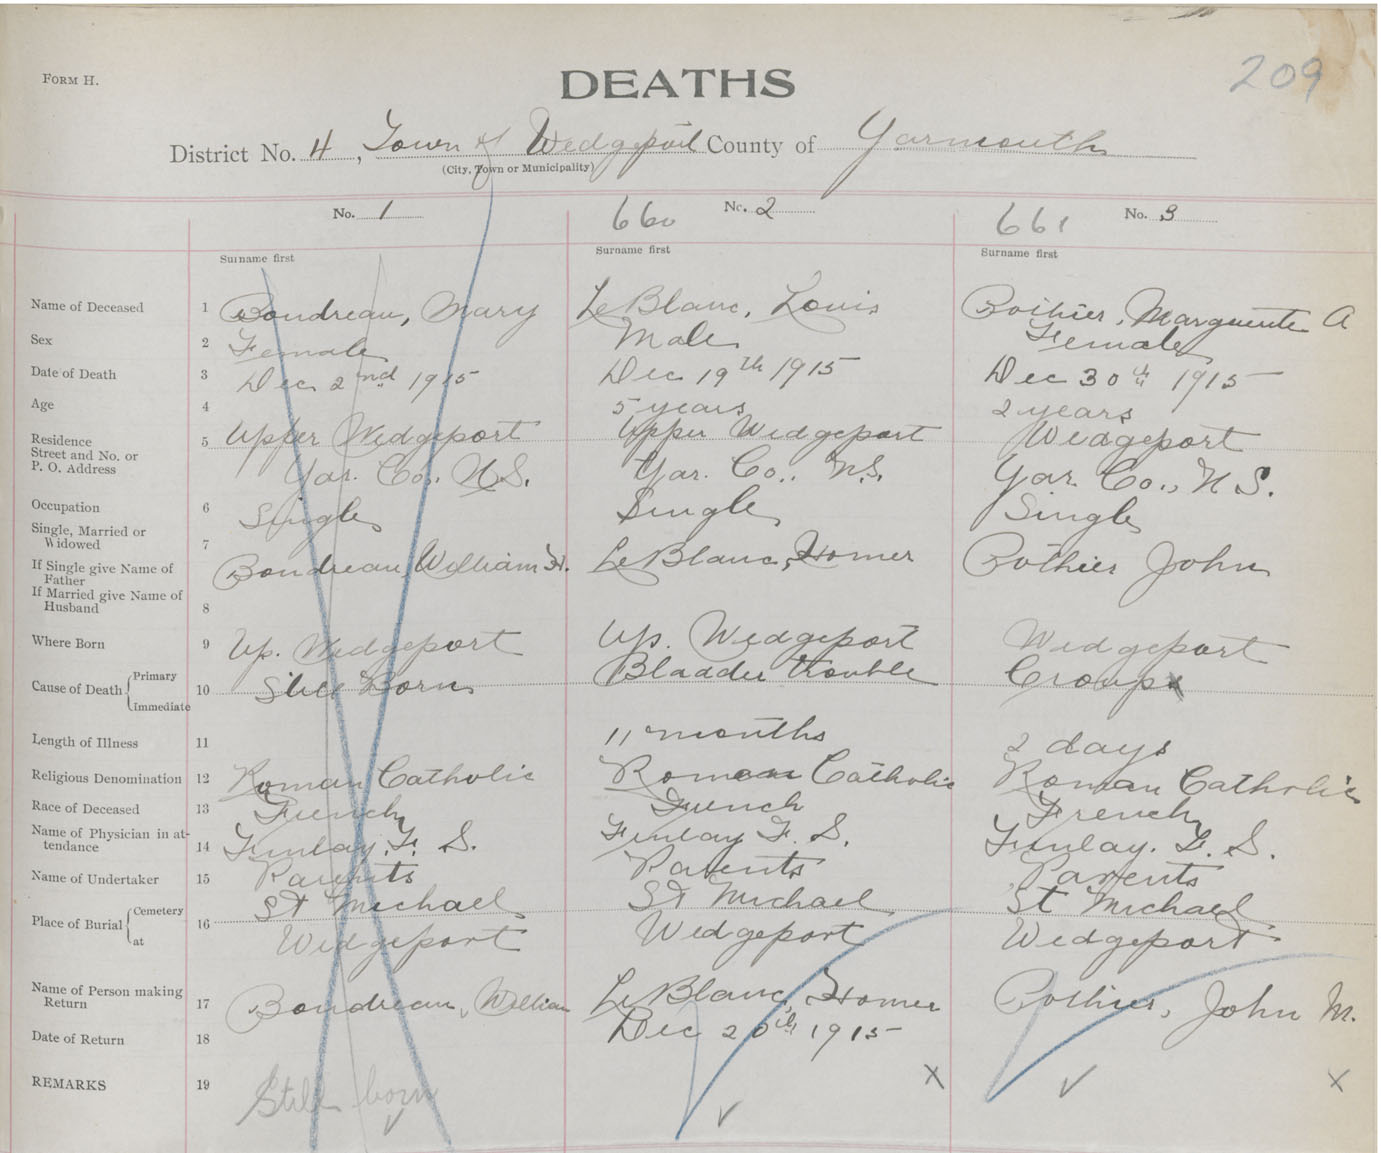 209
FORM H.
DEATHS
District No. 4, Town of Wedgeport County of Yarmouth
(City, Town or Municipality)
No. 1
660 No. 2
661 No. 3
Surname first Surname first Surname first
Name of Deceased 1 Boudreau, Mary LeBlanc, Louis Pothier, Marguerite A
Sex 2 Female Male Female
Date of Death 3 Dec 2nd 1915 Dec 19th 1915 Dec 30th 1915
Age 4 5 years 2 years
Residence 5 Upper Wedgeport Upper Wedgeport Wedgeport
Street and No. or
P. O. Address Yar. Co., N.S. Yar. Co., N.S. Yar. Co., N S.
Occupation 6 Single Single Single
Single, Married or
Widowed 7
If Single give Name of
Father Boudreau, William H. LeBlanc, Homer Pothier John
If Married give Name of
Husband 8
Where Born 9 Up. Wedgeport Up. Wedgeport Wedgeport
Cause of Death { Primary
10 Still Born Bladder trouble Croup x
Immediate
Length of Illness 11 11 months 2 days
Religious Denomination 12 Roman Catholic Roman Catholic Roman Catholic
Race of Deceased 13 French French French
Name of Physician in at-
tendance 14 Finlay, F. S. Finlay F. S. Finlay. F. S.
Name of Undertaker 15 Parents Parents Parents
Place of Burial { Cemetery 16 St Michael St Michael St Michael
at Wedgeport Wedgeport Wedgeport
Name of Person making
Return 17 Boudreau, William LeBlanc, Homer Pothier, John M.
Date of Return 18 Dec 20th 1915
REMARKS 19 Still born x x